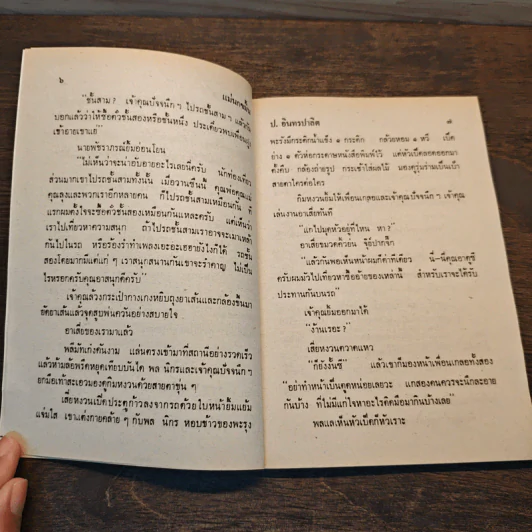 ๖
แม่นกขมิ้น
"ชั้นสาม? เจ้าคุณปัจจนึก ๆ ไปรถชั้นสาม ๆ แล้วกัน
บอกแล้วว่าให้ซื้อตั๋วชั้นสองหรือชั้นหนึ่ง ประเดี๋ยวพบเพื่อนฝูง
เข้าอายเขาแย่"
นายพัชราภรณ์ยิ้มอ่อนโยน
"ไม่เห็นว่าจะน่าอับอายอะไรเลยนี่ครับ นักท่องเที่ยว
ส่วนมากเขาไปรถชั้นสามทั้งนั้น เมื่อวานซืนนี้ คุณพ่อคุณแม่
คุณลุงและพวกเราอีกหลายคน ก็ไปรถชั้นสามเหมือนกัน ที
แรกผมตั้งใจจะซื้อตั๋วชั้นสองเหมือนกันแหละครับ แต่เห็นว่า
เราไปเที่ยวหาความสนุก ถ้าไปรถชั้นสามเราอาจจะเมาเหล้า
กันไปในรถ หรือร้องรำทำเพลงเยะอะเฮอายังไงก็ได้ รถชั้น
สองโดยมากมีแต่แก่ ๆ เราสนุกสนานกันเขาจะรำคาญ ไม่เป็น
ไรหรอกครับคุณอาสนุกดีครับ"
เจ้าคุณล้วงกระเป๋ากางเกงหยิบถุงยาเส้นและกล้องขึ้นมา
ยัดยาเส้นแล้วจุดสูบพ่นควันอย่างสบายใจ
อาเสี่ยของเรามาแล้ว
พลัมัทเก๋งคันงาม แล่นตรงเข้ามาที่สถานีอย่างรวดเร็ว
แล้วห้ามล้อพรืดหยุดเทียบบันได พล นิกรและเจ้าคุณปัจจนึก ๆ
ยกมือเท้าสะเอวมองดูกิมหงวนด้วยสายตาขุ่น ๆ
เสี่ยหงวนเปิดประตูก้าวลงจากรถด้วยใบหน้ายิ้มแย้ม
แจ่มใส เขาแต่งกายคล้าย ๆ กับพล นิกร หอบข้าวของพะรุง
ป. อินทรปาลิต
๗
พะรังมีกระติกน้ำแข็ง ๑ กระติก กล้วยหอม ๑ หวี เป็ด
ย่าง ๑ ตัวห่อกระดาษหนังสือพิมพ์ไว้ แต่หัวเป็ดลอดออกมา
ทั้งคืบ กล้องถ่ายรูป กระเช้าใส่ผลไม้ มองดูรุ่มร่ามเป็นเป้า
สายตาใครต่อใคร
กิมหงวนยิ้มให้เพื่อนเกลอและเจ้าคุณปัจจนึก ๆ เจ้าคุณ
เล่นงานอาเสี่ยทันที
"แกไปมุดหัวอยู่ที่ไหน หา?"
อาเสี่ยขมวดคิ้วย่น จุ๊ย์ปากจิ๊ก
"แล้วกันพอเห็นหน้าผมก็ด่าทีเดียว นี่–นี่คุณอาดุซี
ครับผมมัวไปเที่ยวหาซื้ออ้ายของเหล่านี้ สำหรับเราจะได้รับ
ประทานกันบนรถ"
เจ้าคุณยิ้มออกมาได้
"งั้นเรอะ?"
เสี่ยหงวนควาดแหว
"ก็ยังงั้นซี" แล้วเขาก็มองหน้าเพื่อนเกลอทั้งสอง
"อย่าทำหน้าเป็นตูดหน่อยเลยวะ แกสองคนควรจะนึกละอาย
กันบ้าง ที่ไม่มีแก่ใจหาอะไรติดมือมากินบ้างเลย"
พลแลเห็นหัวเป็ดก็หัวเราะ